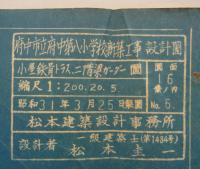 府中市立府中第八小学校新築工事 設計図
小屋鉄骨トラス、二階梁ガーダー図
図面
16葉ノ内
縮尺 1:200.20.5
昭和31年3月25日製図
No. 6.
松本建築設計事務所
一級建築士(第1484号)
設計者 松本圭一